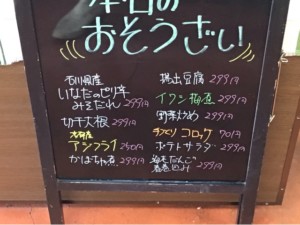 本日の
おそうざい
石川県産
いなだのピリ辛
みぞれだれ 299円
切干大根 299円
アジフライ 250円
かぼちゃ煮 299円
揚出豆腐 299円
イワシ梅煮 299円
野菜炒め 299円
手づくりコロッケ 70円
ポテトサラダ 299円
春巻包み 299円